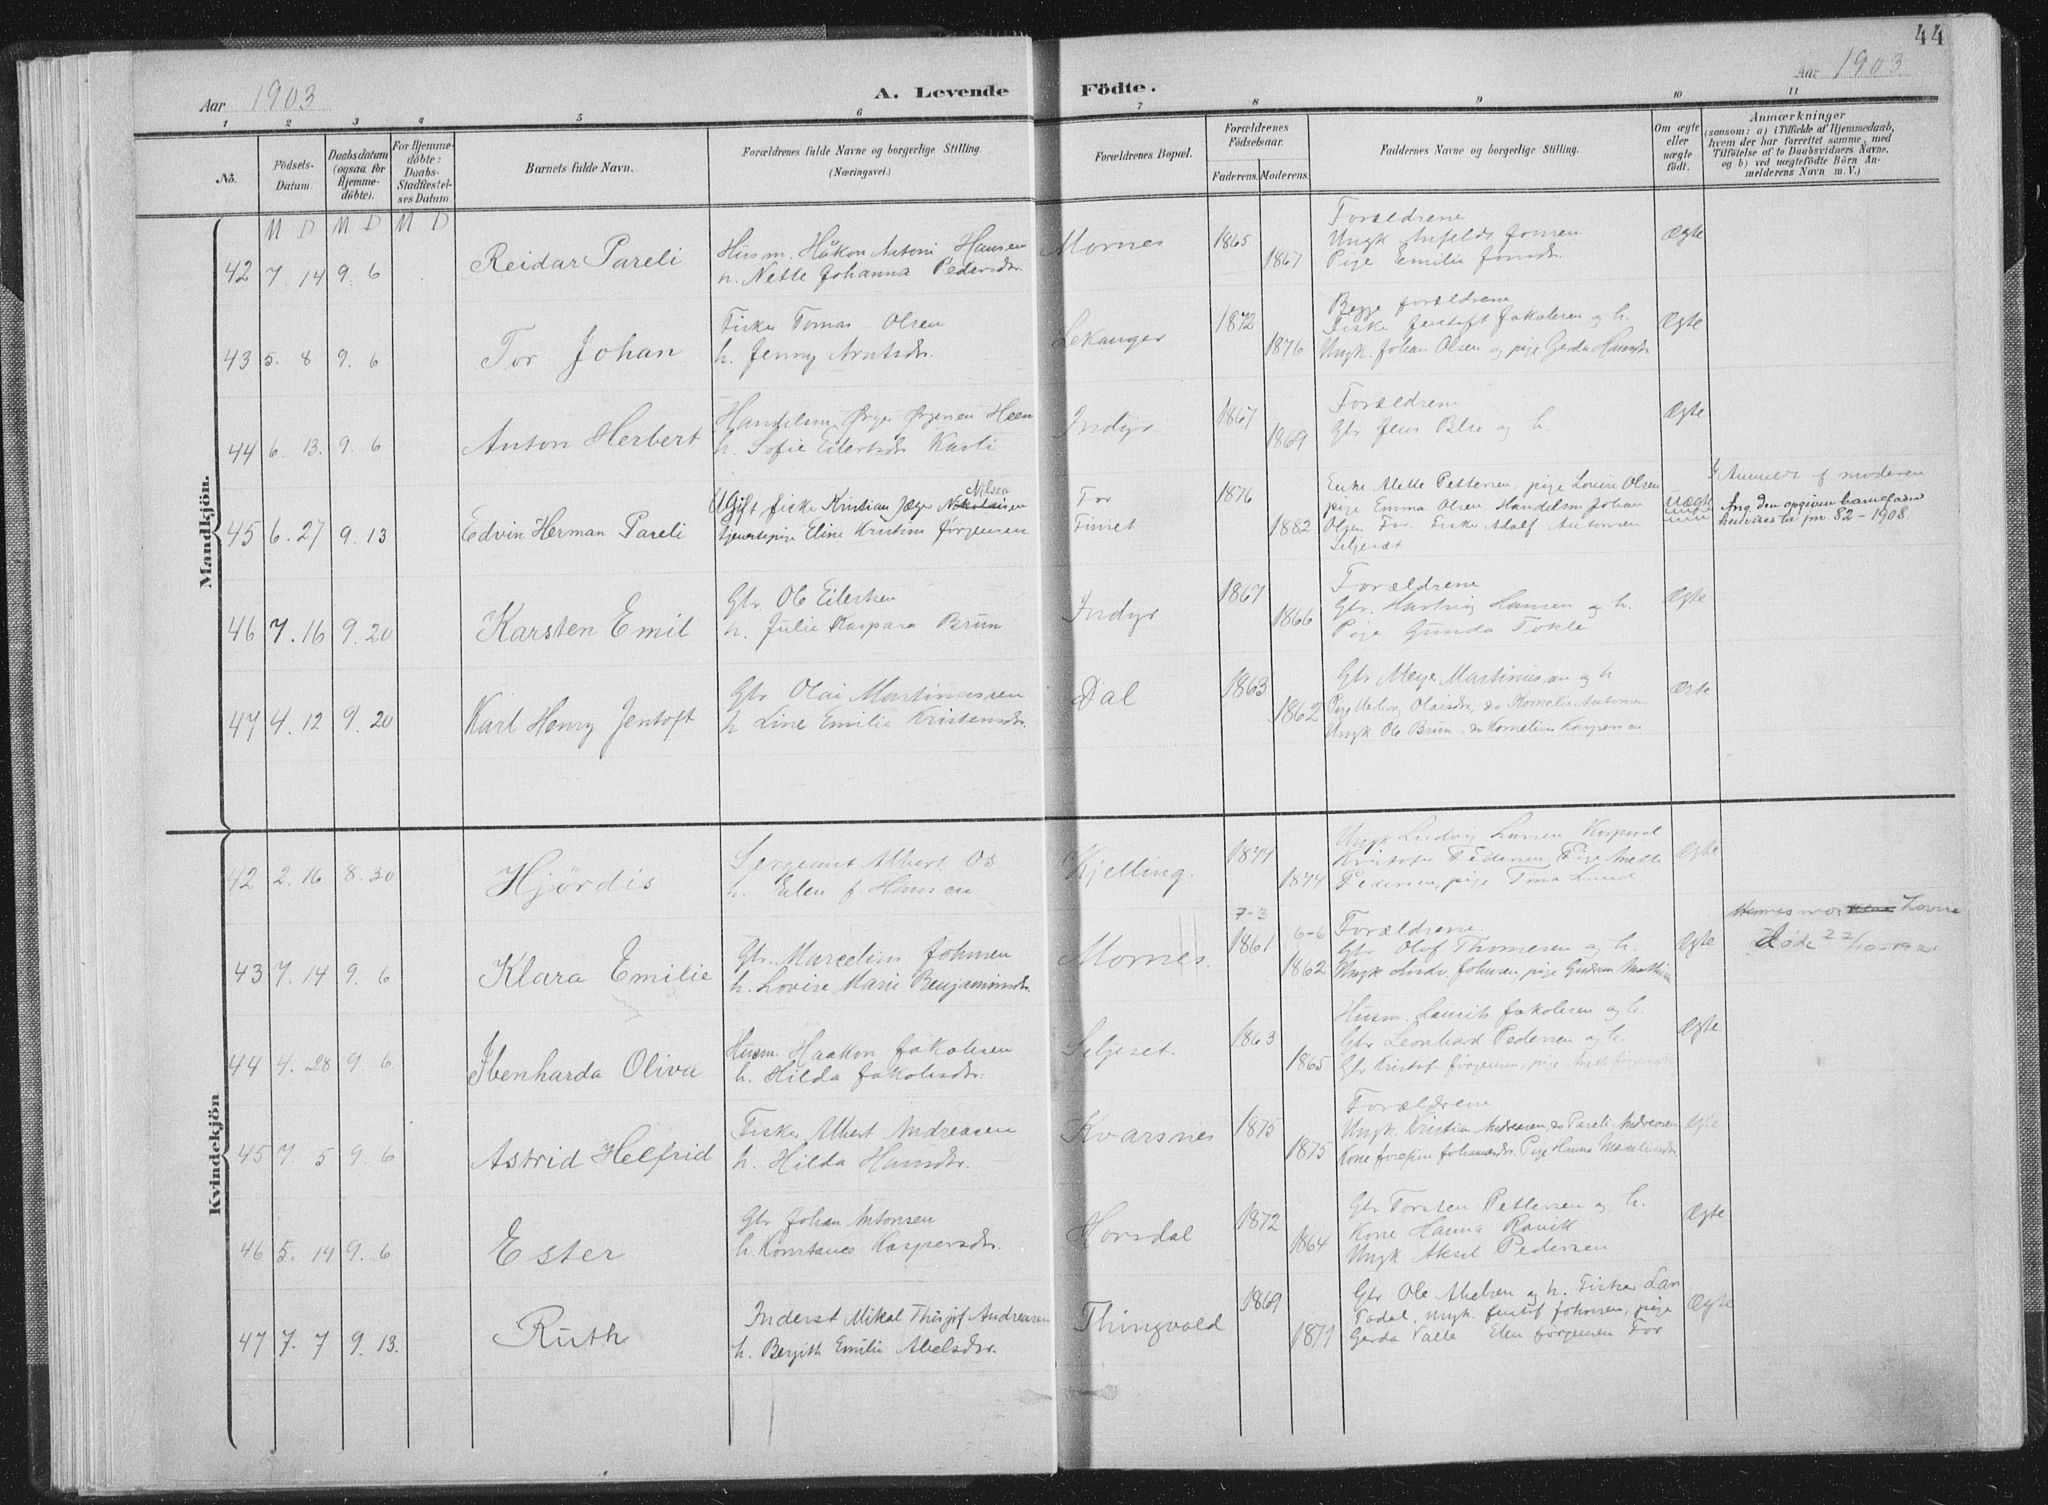 44
Aar 1903
A. Levende Födte.
Aar 1903
1 2 3 4 5 6 7 8 9 10 11
No.
Födsels-Datum.
Daabsdatum (ogsaa for Hjemmedöbte).
For Hjemmedöbte: Daabs-Stadfæstelses Datum
Barnets fulde Navn.
Forældrenes fulde Navne og borgerlige Stilling. (Næringsvei.)
Forældrenes Bopæl.
Forældrenes Födselsaar.
Faderens. Moderens.
Faddernes Navne og borgerlige Stilling.
Om ægte eller uægte födt.
Anmærkninger
(saasom: a) i Tilfælde af Hjemmedaab, hvem der har forrettet samme, med Tilföielse af to Daabsvidners Navne. og b) ved uægtefödte Börn Anmelderens Navn m. V.)
M D M D M D
Mandkjön.
42 7. 14 9. 6 Reidar Pareli
Husm. Håkon Antoni Hansen
h. Nette Johanna Pedersdr.
Mornes 1865 1867
Forældrene
Ungk Jonsen
Pige Emilie Jonsdr.
Ægte
43 5. 8 9. 6 Tor Johan
Fisker Tomas Olsen
h. Jenny Arntsdr.
Lekanger 1872 1876
Begge forældrene
Fisker Jentoft Jakobsen og h.
Ungk. Johan Olsen og pige Gerda Hansdr
Ægte
44 6. 13. 9. 6 Anton Herbert
Handelsm Ørger Ørgensen Heen
h. Sofie Eilertsdr Karli
Indyr 1867 1869
Forældrene
Gbr Jens Olse og h.
Ægte
45 6. 27 9. 13 Edvin Herman Pareli
Ugift fisker Kristian Jæger Nikolaisen Nilsen
tjenestepige Eline Kristine Jørgensen
For
Finset
1876 1882
Enke Alette Pettersen, pige Lovise Olsen
pige Emma Olsen, Handelsm Johan
Olsen For. Fisker Adolf Antonsen
Seljeset
Uægte
Anmeldt af moderen
Ang. den opgivne barnefader
henvises til jnr. 82 - 1908.
46 7. 16 9. 20 Karsten Emil
Gbr. Ole Eilertsen
h. Julie Kaspara Brun
Indyr 1867 1866
Forældrene
Gbr. Hartvig Hansen og h.
Pige Gunda Tokle
Ægte
47 4. 12 9. 20 Karl Henry Jentoft
Gbr Olai Martinussen
h Line Emilie Kristensdr.
Dal 1863 1862
Gbr Meyer Martinussen og h
Pige Olaisdr, do Kornelie Antonsen
Ungk Ole Brun. do Kornelius Kaspersen
Ægte
Kvindekjön
42 2. 16 8. 30 Hjördis
Sergeant Albert Os
h. Elen f. Hansen
Kjelling. 1874 1874
Ungk Ludvig Larsen Korporal
Kristofer Pedersen, Pige Mette
Pedersen, pige Tina Lund
Ægte
43 7. 14 9. 6 Klara Emilie
Gbr. Marcelius Johnsen
h. Lovise Marie Benjaminsdr.
Mornes.
7-3 1861
6-6 1862
Forældrene.
Gbr Olof Thomesen og h.
Ungk Ludv. Johnsen, pige Gudrun Mathisen
Ægte
Hennes mor Lovise
Døde 22/10-1921
44 4. 28 9. 6. Ibenharda Oliva
Husm. Haakon Jakobsen
h. Hilda Jakobsdr.
Seljeset. 1863 1865
Husm. Laurits Jakobsen og h.
Gbr Leonhard Pedersen og h.
Gbr Kristofer Jörgensen, pige Mette Jörgensdr
Ægte
45 7. 5 9. 6 Astrid Helfrid
Fisker Albert Andreasen
h. Hilda Hansdr.
Kvarsnes 1875 1875
Forældrene
Ungk. Kristian Andreasen, do Pareli Andreasen
Kone Josefine Johannesdr. Pige Hanna Marseliusdr
Ægte
46 5. 14 9. 6 Ester
Gbr Johan Antonsen
h. Konstanse Kaspersdr.
Horsdal 1872 1864
Gbr Torsten Pettersen og h.
Kone Hanna Ravik
Ungk Aksel Pedersen
Ægte
47 7. 7 9. 13. Ruth
Inderst Mikal Thisjof Andreasen
h. Bergith Emilie Abelsdr.
Thingvold 1869 1871
Gbr Ole Abelsen og h. Fisker Lars
Todal, Ungk. Jentof Johnsen, pige
Gerda Valle Elen Jörgensen For
Ægte